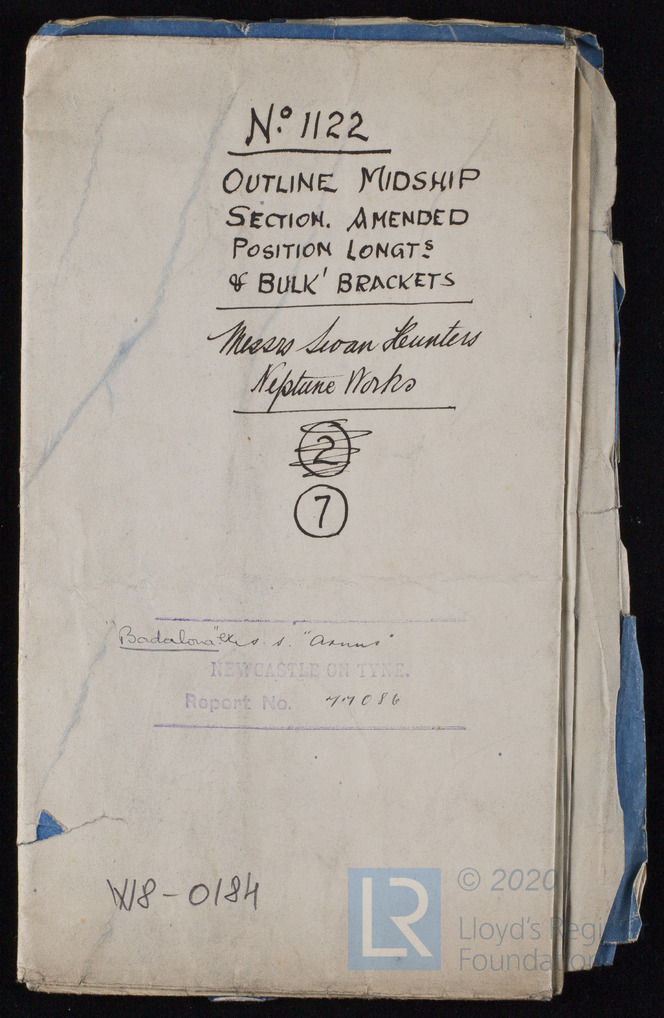 Nº 1122
OUTLINE MIDSHIP
SECTION. AMENDED
POSITION LONGTS
& BULK' BRACKETS
Messrs Swan Hunters
Neptune Works
2
7
"Badalona" ex s.s.
NEWCASTLE ON TYNE.
Report No. 77086
W8-0184
LR
© 2020
Lloyd's Regi
Foundation